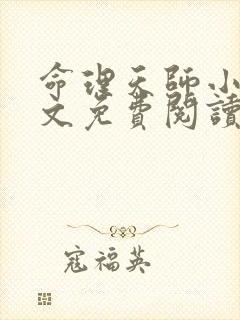 命理天師小
文免費閱讀
寇福英